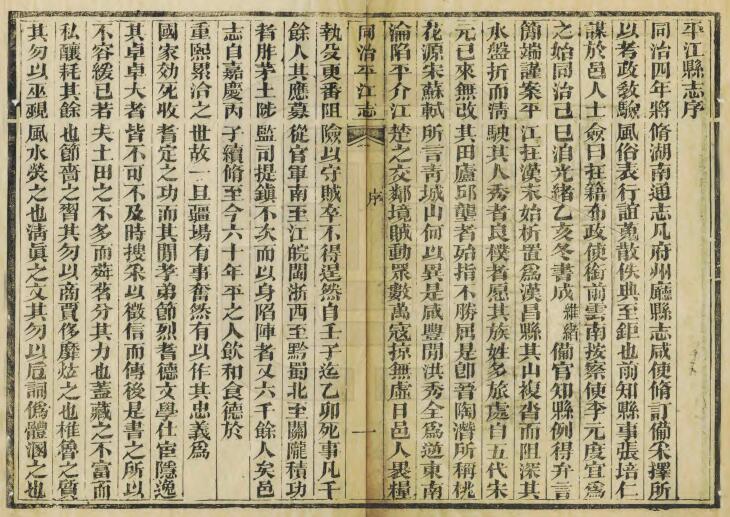 平江縣志序
同治四年將脩湖南通志凡府州廳縣志咸使脩訂備采擇所
以考政教驗風俗表行誼蒐散佚典至鉅也前知縣事張培仁
謀於邑人士僉曰在籍布政使銜前雲南按察使李元度宜爲
之始同治己巳洎光緒乙亥冬書成維緒備官知縣例得弁言
簡端謹案平江在漢末始析置爲漢昌縣其山複沓而阻深其
水盤折而淸駛其人秀者良樸者愿其族姓多旅處自五代宋
元已來無改其田廬邱壟者始指不勝屈是卽晉陶潛所稱桃
花源宋蘇軾所言靑城山何以異是咸豐閒洪秀全爲逆東南
淪陷平介江楚之交鄰境賊動眾數萬寇掠無虛日邑人畏糧
同治平江志
序
一
執殳更番阻險以守賊卒不得逞然自壬子迄乙卯死事凡千
餘人其應募從官軍南至江皖閩浙西至黔蜀北至關隴積功
者胙茅土陟監司提鎭不次而以身陷陣者又六千餘人矣邑
志自嘉慶丙子續脩至今六十年平之人飲和食德於
重熙累洽之世故一旦疆埸有事奮然有以作其忠義爲
國家効死收耆定之功而其閒孝弟節烈耆德文學仕宦隱逸
其卓卓大者皆不可不及時搜采以徵信而傳後是書之所以
不容緩已若夫土田之不多而蕣茗分其力也蓋藏之不富而
私釀耗其餘也節嗇之習其勿以商賈侈靡炫之也椎魯之質
其勿以巫覡風水熒之也淸眞之文其勿以巵詞僞體溷之也